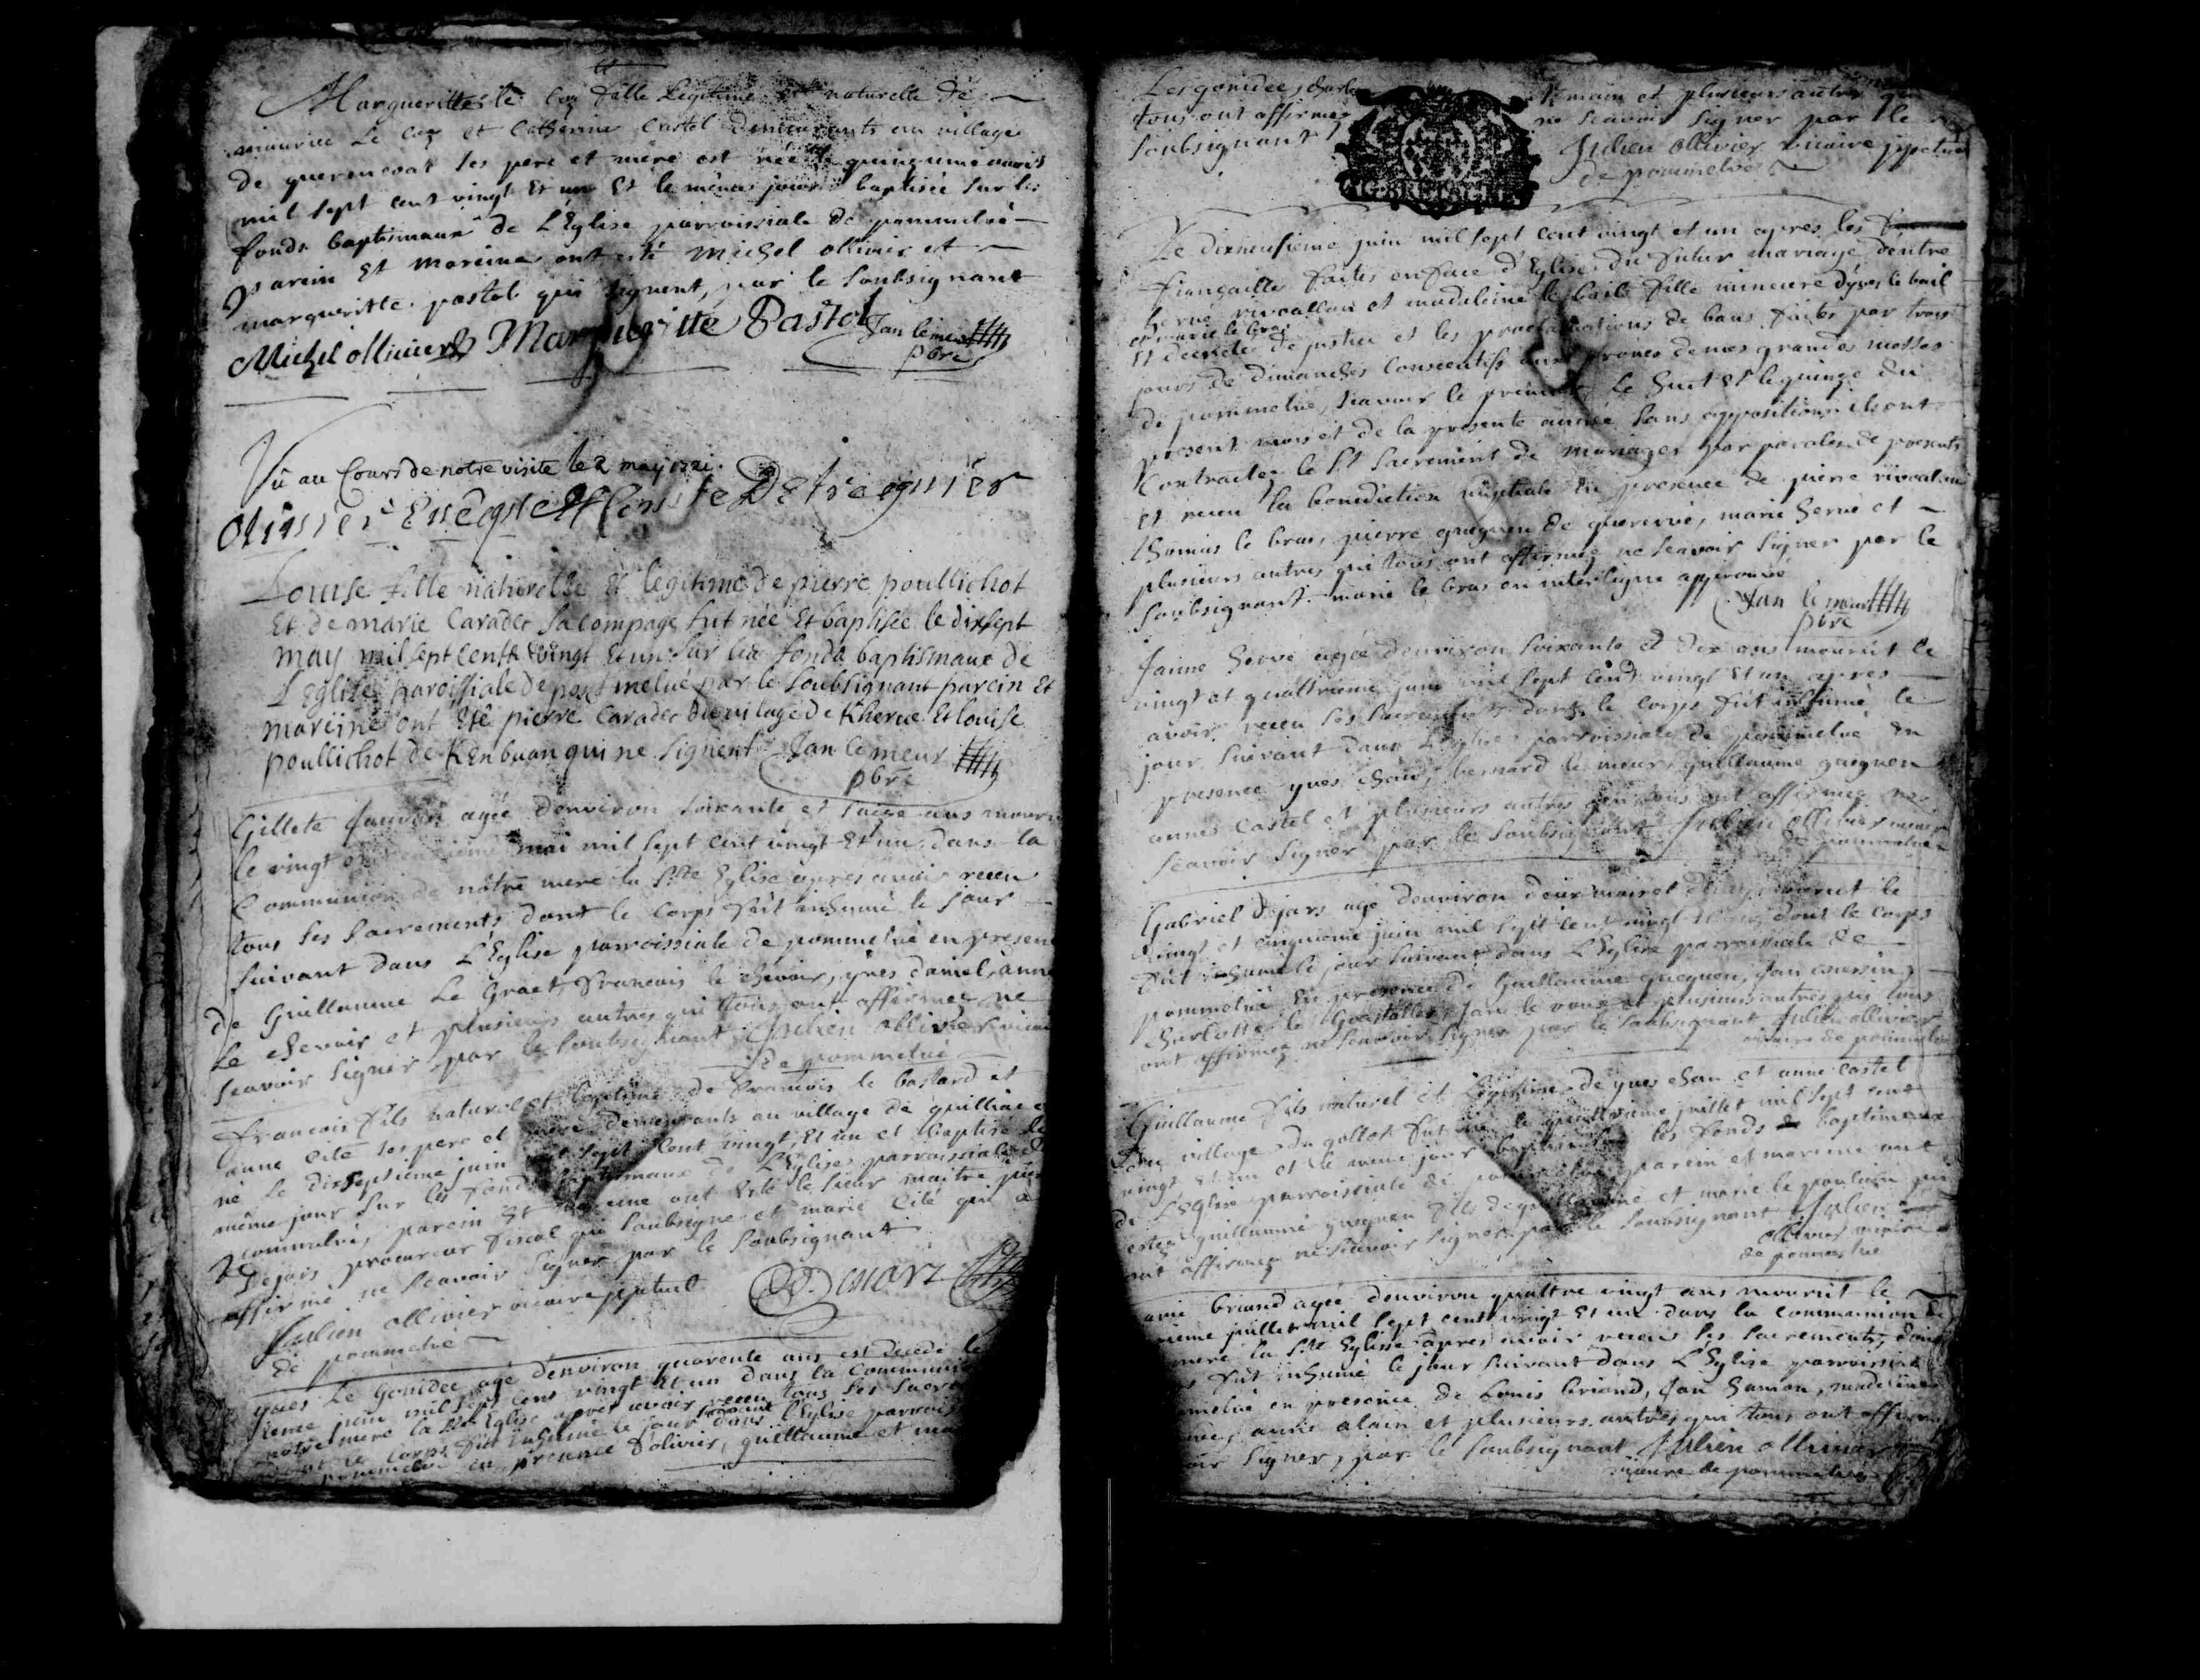 Margueritte le Coz fille Legitime et naturelle de
maurice Le Coz et Catherine Castel demeurants au village
de ses pere et mere est née le quinzieme
mil sept cent vingt Et un Et le même jour baptisée sur les
fonds baptismaux de L'Eglise parroissiale de pommelvé
parein Et mareine ont esté Michel ollivier et
margueritte pastol qui signent, par le soubsignant
Michel ollivier Margueritte Pastol Jan le meur
pbre
Vû au Cours de notre visite le 2 may 1721.
olivier Evêque et Comte De treguier
Louise fille naturelle Et legitime de pierre poullichot
Et de marie Caradec sa compage fut née Et baptisée le dixsept
may mil sept cent vingt Et un sur les fonds baptismaux de
L'Eglise paroissiale de pommelvé par le soubsignant parein Et
mareine ont été pierre Caradec du vilage de Kherve Et louise
poullichot de Kenbuan qui ne signent Jan le meur
pbre
Gillete agée d'environ soixante et saize ans mourut
le vingt mai mil sept cent vingt Et un dans la
Communion de nôtre mere la Ste Eglise apres avoir receu
tous ses sacrements dont le corps fut inhumé le jour
suivant dans L'Eglise parroissiale de pommelvé en presence
de Guillaume Le Graet, francois le chevoir, yves daniel, anne
Le chevoir et plusieurs autres qui tous ont affirmez ne
scavoir signer par le soubsignant Julien ollivier vicaire
de pommelvé
francois fils naturel et legitime de francois le bastard et
anne Cité ses pere et mere demeurants au village de
né le dixseptieme juin mil sept cent vingt Et un et baptisé le
même jour sur les fonds baptismaux de L'Eglise parroissiale de
pommelvé, parein Et mareine ont Esté le sieur maitre
Dejars procureur fiscal qui soubsigne et marie Cité qui a
affirmé ne scavoir signer par le soubsignant
Julien ollivier vicaire ppetuel
de pommelvé
yves Le Gonidec agé d'environ quarente ans est decedé le
juin mil sept cens vingt Et un dans la Communion
notre mere la Ste Eglise apres avoir receu tous ses sacre
dont le corps fut inhumé le jour suivant dans l'Eglise parrois
pommelvé en presence d'olivier, guillaume et
Les gonidec,
tous ont affirmez
soubsignant
et plusieurs autres qui
ne scavoir signer par le
Julien ollivier vicaire ppetuel
de pommelvé
Le dixneufieme juin mil sept cent vingt et un apres les
fiançailles faites en face d'Eglise du futur mariage d'entre
herve rivoallan et madeleine le bail fille mineure d'yves le bail
et marie le bras
Et decreté de justice et les proclamations de bans faites par trois
jours de dimanches consecutifs aux prones de nos grandes messes
de pommelvé, scavoir le premier, Le huit Et le quinze du
present mois et de la presente année sans oppositions ils ont
Contractez le St sacrement de Mariage par paroles de presents
Et receu la benediction nuptiale en presence de pierre rivoalan
thomas le bras, pierre gueguen de , marie herve et
plusieurs autres qui tous ont affirmez ne scavoir signer par le
soubsignant. marie le bras en interligne approuvé
Jan le meur
pbre
Janne hervé agée d'environ soixante et dix ans mourut le
vingt et quattrieme juin mil sept cent vingt Et un apres
avoir receu ses sacrements dont le corps fut inhumé le
jour suivant dans L'Eglise parroissiale de pommelvé En
presence yves chau, bernard le meur, guillaume gueguen
anne Castel et plusieurs autres qui tous ont affirmez ne
scavoir signer par le soubsignant Julien ollivier vicaire
de pommelvé
Gabriel Dejars agé d'environ deux mois et mourut le
vingt et cinquieme juin mil sept cent vingt Et un, dont le corps
fut inhumé le jour suivant dans L'Eglise parroissiale de
pommelvé En presence de Guillaume gueguen, Jan
Charlotte le , Jan le roux et plusieurs autres qui tous
ont affirmez ne scavoir signer par le soubsignant Julien ollivier
vicaire de pommelvé
Guillaume fils naturel et Legitime de yves chau et anne Castel
du village du gollot fut né le quattrieme juillet mil sept cent
vingt Et un et le meme jour baptisé sur les fonds de baptismaux
de L'Eglise parroissiale de pommelvé parein et mareine ont
estez guillaume gueguen fils de guillaume et marie le poulain qui
ont affirmez ne scavoir signer par le soubsignant Julien
ollivier vicaire
de pommelvé
briand agée d'environ quattre vingt ans mourut le
ieme juillet mil sept cent vingt Et un dans la communion de
mere la Ste Eglise apres avoir receu ses sacrements, dont
fut inhumé le jour suivant dans L'Eglise parroissiale
en presence de Louis briand, Jan hamon, madeleine
anne alain et plusieurs autres qui tous ont affirmez
signer, par le soubsignant Julien ollivier
vicaire de pommelvé